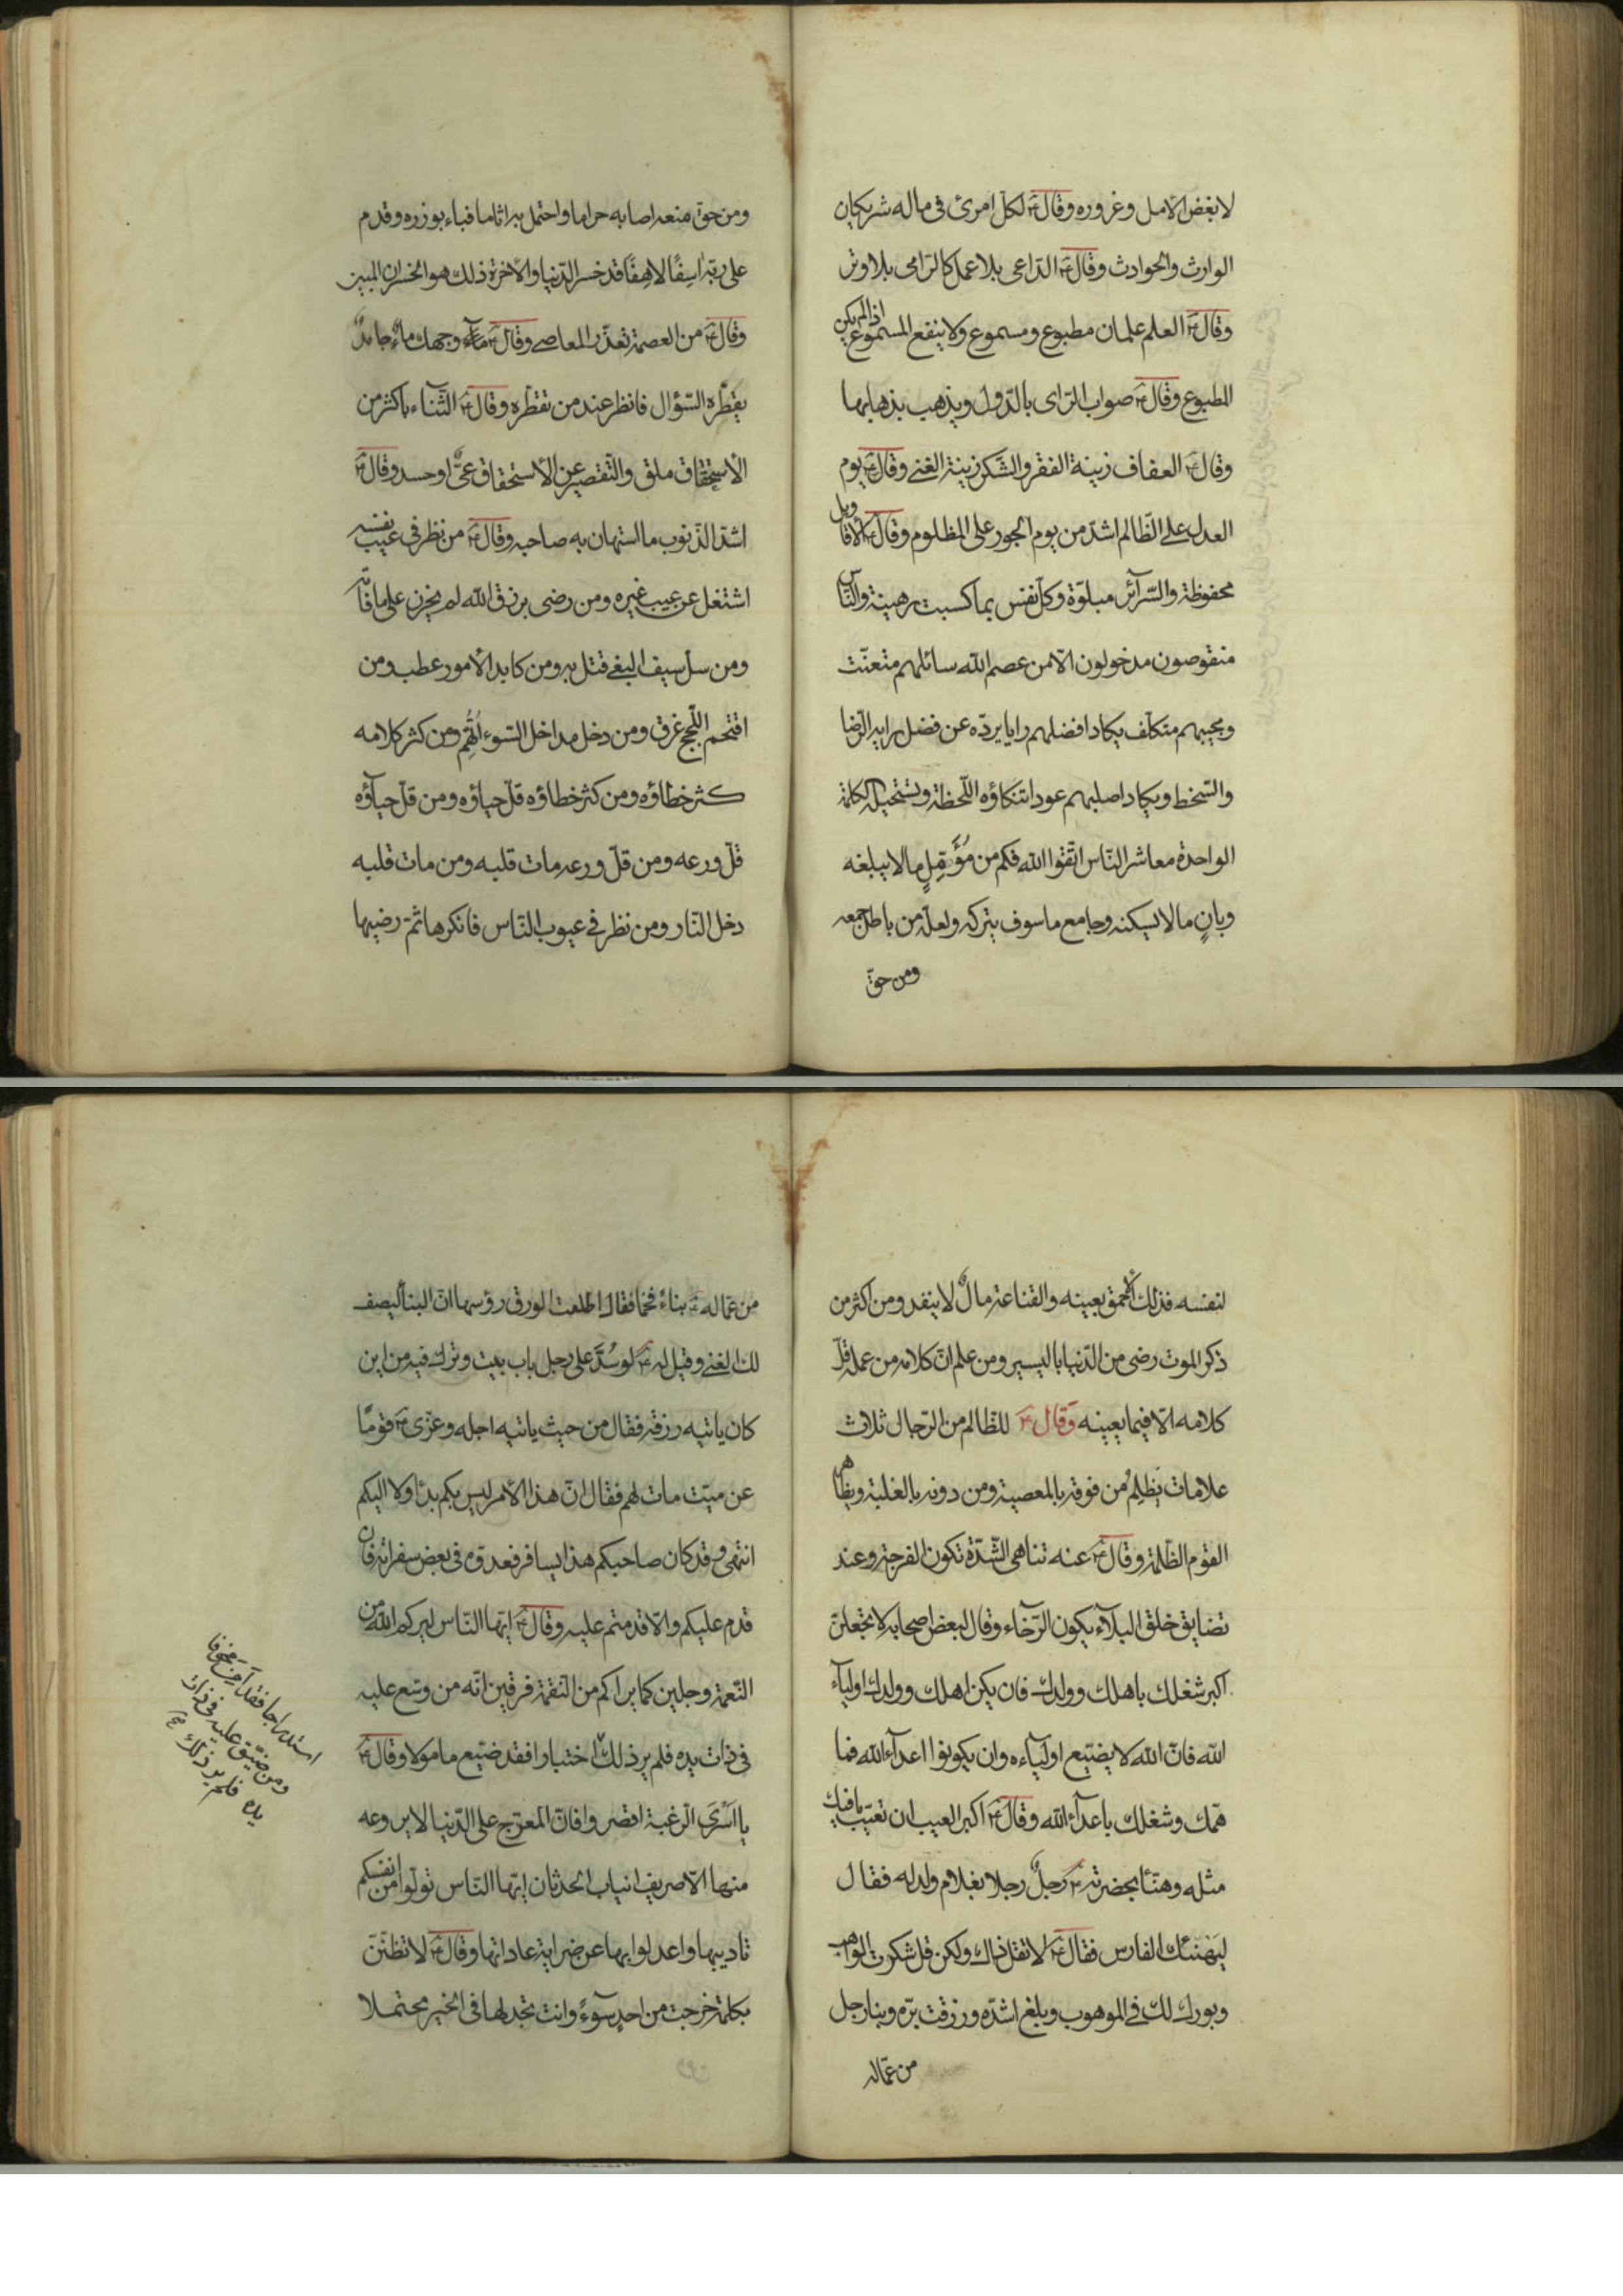 لابغض الامل وغروره وقال ع لكل امرئ فى ماله شريكان
الوارث والحوادث وقال ع الداعى بلا عمل كالرامى بلا وتر
وقال ع العلم علمان مطبوع ومسموع ولا ينفع المسموع اذا لم يكن
المطبوع وقال ع صواب الراى بالدول ويذهب بذهابها
وقال ع العفاف زينة الفقر والشكر زينة الغنى وقال ع يوم
العدل على الظالم اشد من يوم الجور على المظلوم وقال ع الاقاويل
محفوظة والسرآئر مبلوّة وكل نفس بما كسبت رهينة والناس
منقوصون مدخولون الا من عصم الله سائلهم متعنّت
ومجيبهم متكلّف يكاد افضلهم رايا يردّه عن فضل رايه الرضا
والسّخط ويكاد اصلبهم عودا تنكاؤه اللّحظة وتستحيله الكلمة
الواحدة معاشر الناس اتّقوا الله فكم من مؤمّلٍ ما لا يبلغه
وبانٍ ما لا يسكنه وجامع ما سوف يتركه ولعلّه من باطل جمعه
ومن حقّ
ومن حق منعه اصابه حراما واحتمل به اثاما فباء بوزره وقدم
على ربّه اسِفًا لاهِفًا قد خسر الدّنيا والآخرة ذلك هو الخسران المبين
وقال ع من العصمة تعذّر المعاصى وقال ع مآء وجهك ماءٌ جامدٌ
يقطّره السّؤال فانظر عند من تقطّره وقال ع الثّناء باكثر من
الاستحقاق ملق والتّقصير عن الاستحقاق عىٌّ او حسد وقال ع
اشدّ الذّنوب ما استهان به صاحبه وقال ع من نظر فى عيب نفسه
اشتغل عن عيب غيره ومن رضى برزق الله لم يحزن على ما فاته
ومن سلّ سيف البغى قتل به ومن كابد الامور عطب ومن
اقتحم اللّجج غرق ومن دخل مداخل السّوء اتُّهِم ومن كثر كلامه
كثر خطاؤه ومن كثر خطاؤه قلّ حياؤه ومن قلّ حيآؤه
قلّ ورعه ومن قلّ ورعه مات قلبه ومن مات قلبه
دخل النّار ومن نظر فى عيوب النّاس فانكرها ثمّ رضيها
لنفسه فذلك الاحمق بعينه والقناعة مالٌ لا ينفد ومن اكثر من
ذكر الموت رضى من الدّنيا باليسير ومن علم انّ كلامه من عمله قلّ
كلامه الّا فيما يعينه وقال ع للظّالم من الرّجال ثلاث
علامات يَظلِمُ من فوقه بالمعصية ومن دونه بالغلبة ويظاهر
القوم الظّلمة وقال ع عنه تناهى الشّدّة تكون الفرجة وعند
تضايق حلق البلآء يكون الرّخاء وقال لبعض اصحابه لا تجعلنّ
اكبر شغلك باهلك وولدك فان يكن اهلك وولدك اوليآء
الله فانّ الله لا يضيّع اوليآءه وان يكونوا اعدآء الله فما
همّك وشغلك باعدآء الله وقال ع اكبر العيب ان تعيّب ما فيك
مثله وهنّأ بحضرته ع رجلٌ رجلا بغلام ولد له فقال
ليَهنئك الفارس فقال ع لا تقل ذلك ولكن قل شكرت الواهب
وبورك لك فى الموهوب وبلغ اشدّه ورزقت برّه وبنا رجل
من عمّاله
من عمّاله ع بناءً فخما فقال اطلعت الورق رؤسها انّ البناء ليصف
لك الغنى وقيل له ع لو سُدَّ على رجل باب بيت وترك فيه من اين
كان ياتيه رزقه فقال من حيث ياتيه اجله وعزّى ع قومًا
عن ميّت مات لهم فقال انّ هذا الامر ليس بكم بدأ ولا اليكم
انتهى وقد كان صاحبكم هذا يسافر فعدوّه فى بعض سفراته فان
قدم عليكم والّا قدمتم عليه وقال ع ايّها النّاس ليركم الله من
النّعمة وجلين كما يراكم من النّقمة فرقين انّه من وسّع عليه
فى ذات يده فلم ير ذلك اختبارا فقد ضيّع مامولا وقال ع
يا اسْرَى الرّغبة اقصروا فانّ المعرّج على الدّنيا لا يروعه
منها الّا صريف انياب الحدثان ايّها النّاس تولّوا من انفسكم
تاديبها واعدلوا بها عن ضراية عاداتها وقال ع لا تظنّنّ
بكلمة خرجت من احدٍ سوٓءً وانت تجد لها فى الخير محتملا
استدراجا فقد امن مخوفا
ومن ضيّق عليه فى ذات
يده فلم ير ذلك